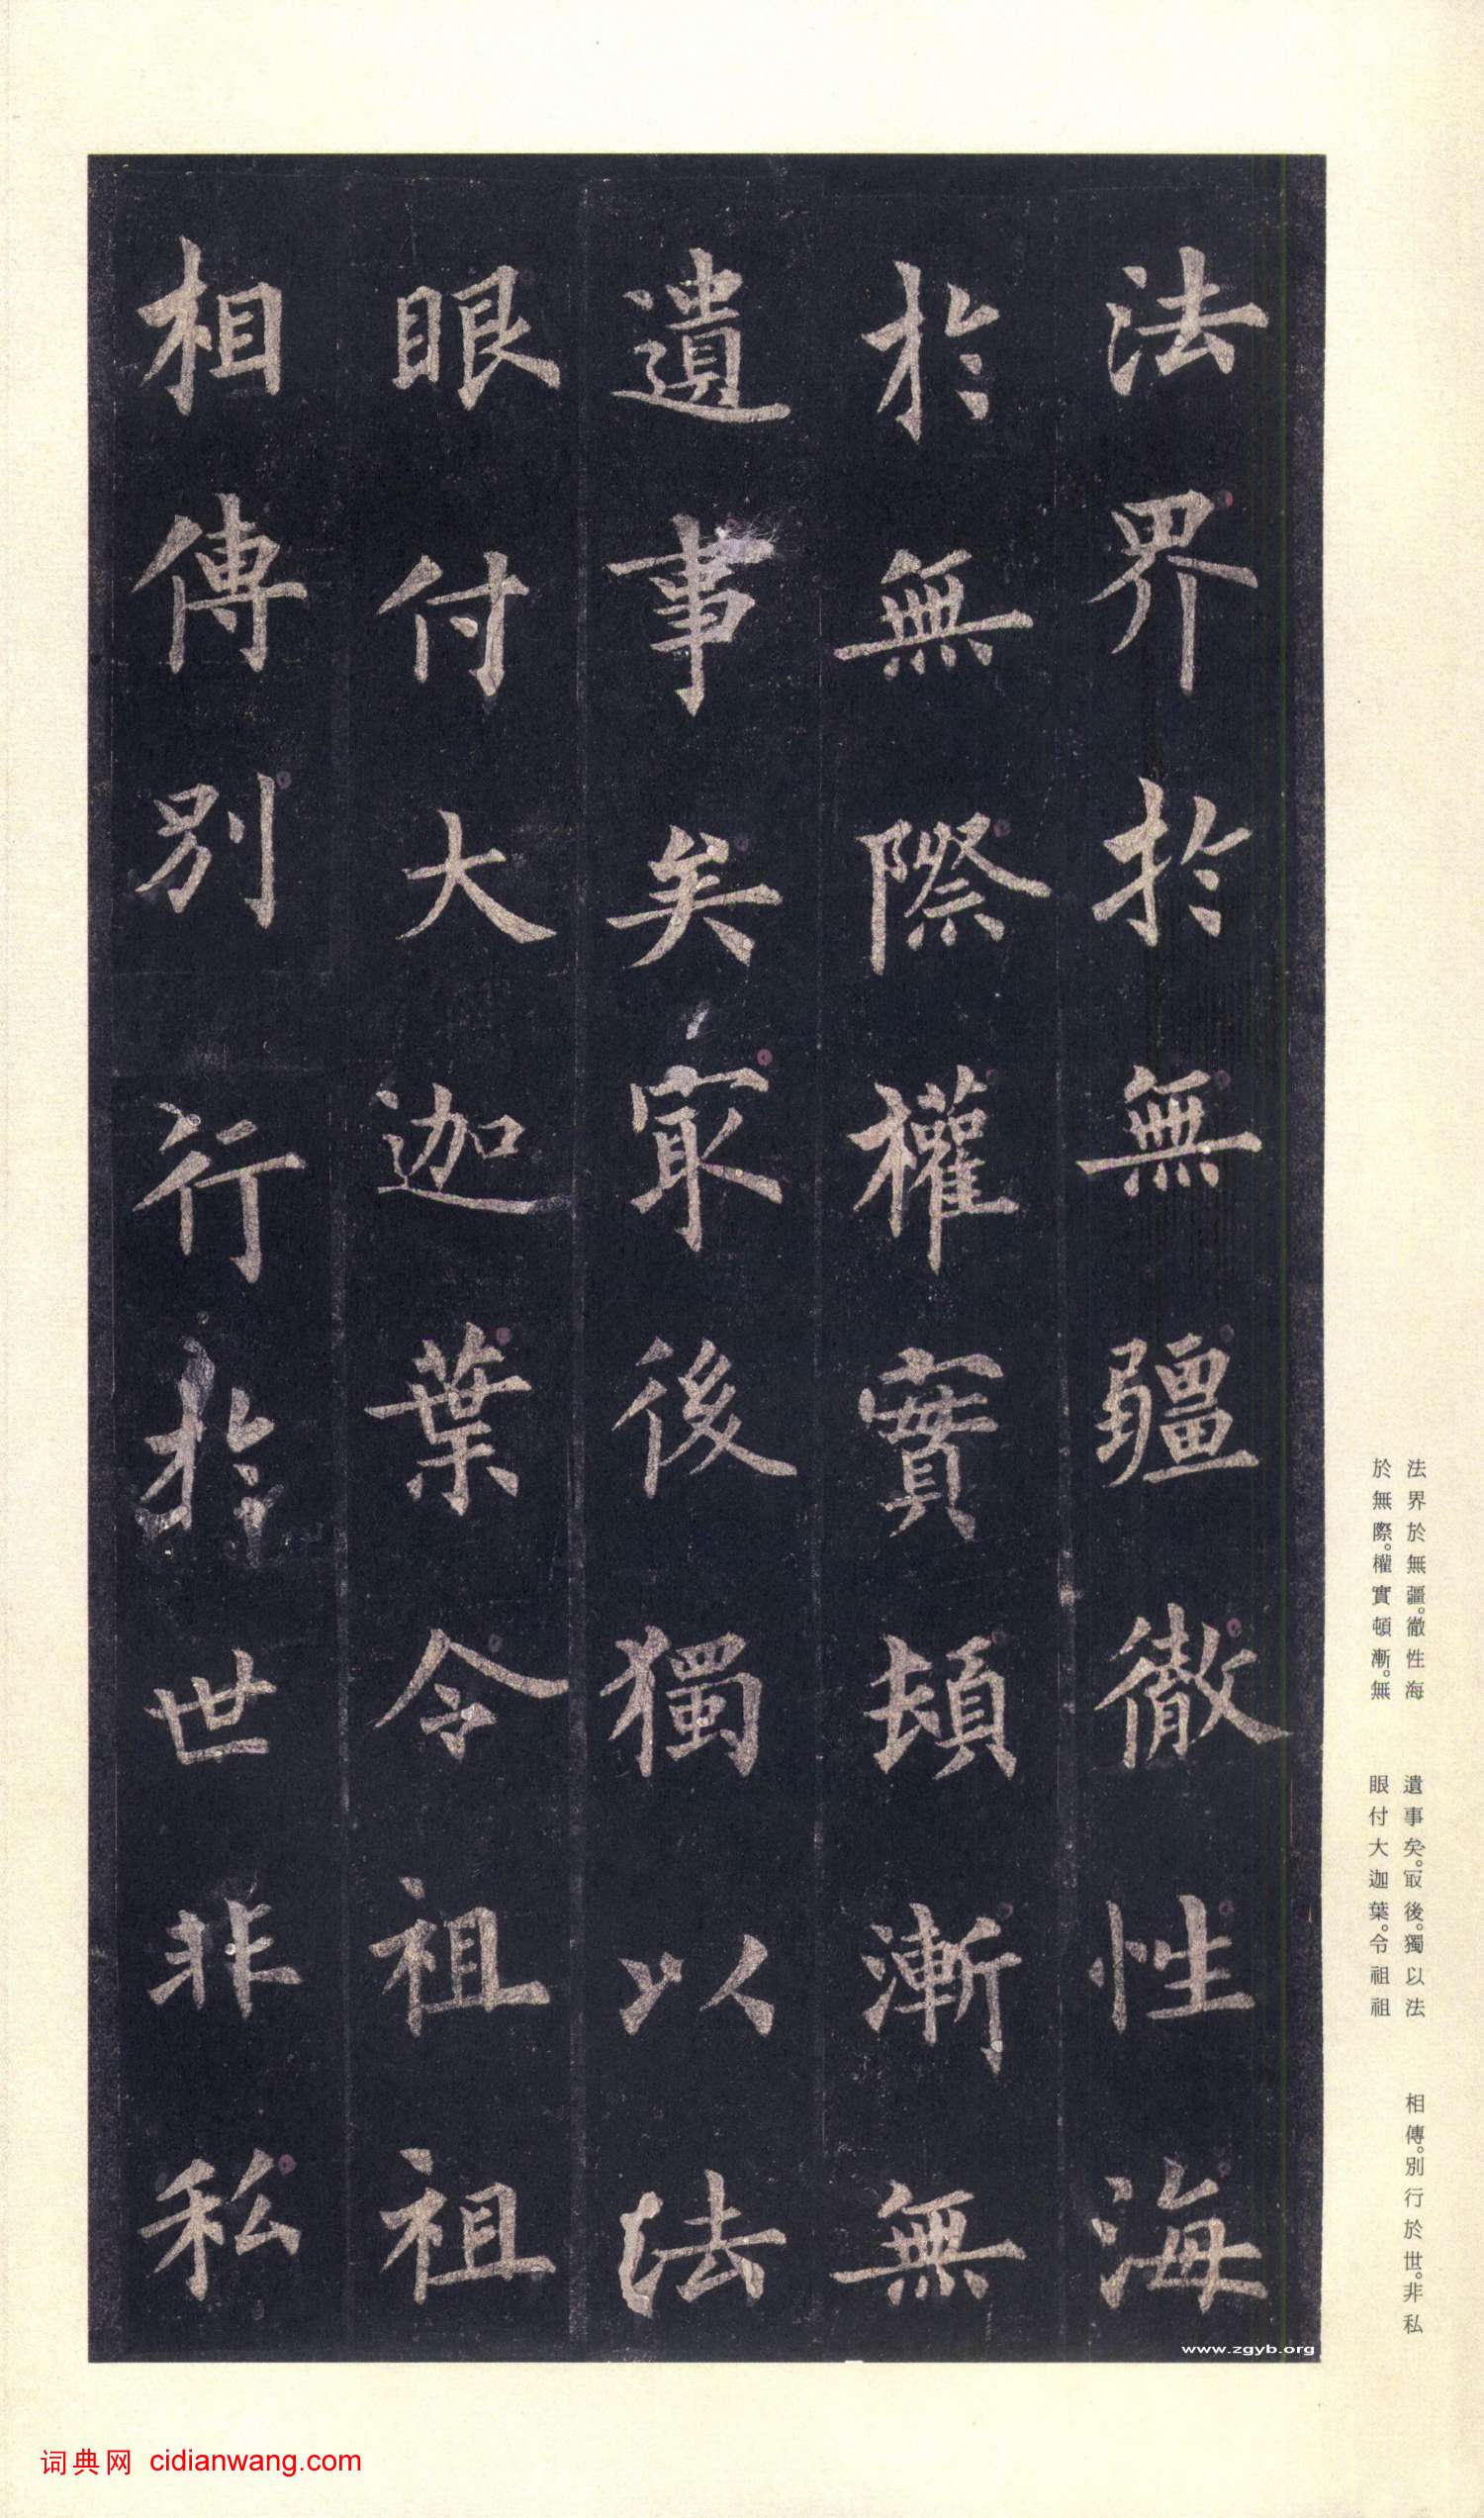 法界於無疆徹性海
於無際權實頓漸無
遺事矣冣後獨以法
眼付大迦葉令祖祖
相傳別行於世非私
法界於無疆。徹性海
於無際。權實頓漸。無
遺事矣。冣後。獨以法
眼付大迦葉。令祖祖
相傳。別行於世。非私
www.zgyb.org
词典网 cidianwang.com